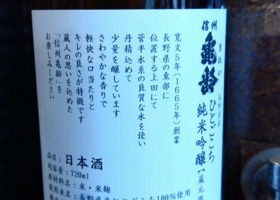 信州
亀齢
ひとごこち
純米吟醸
寛文5年(1665年)創業
長野県の東部に
位置する上田にて
菅平水系の良質な水を使い
丹精込めて
少量を醸しています
さわやかな香りで
軽快な口当たりと
キレの良さが特徴です
蔵人の思いを込めた
「信州亀齢」を
お楽しみください
品目 日本酒
内容量 720ml
原材料名 米・米麹
100%使用